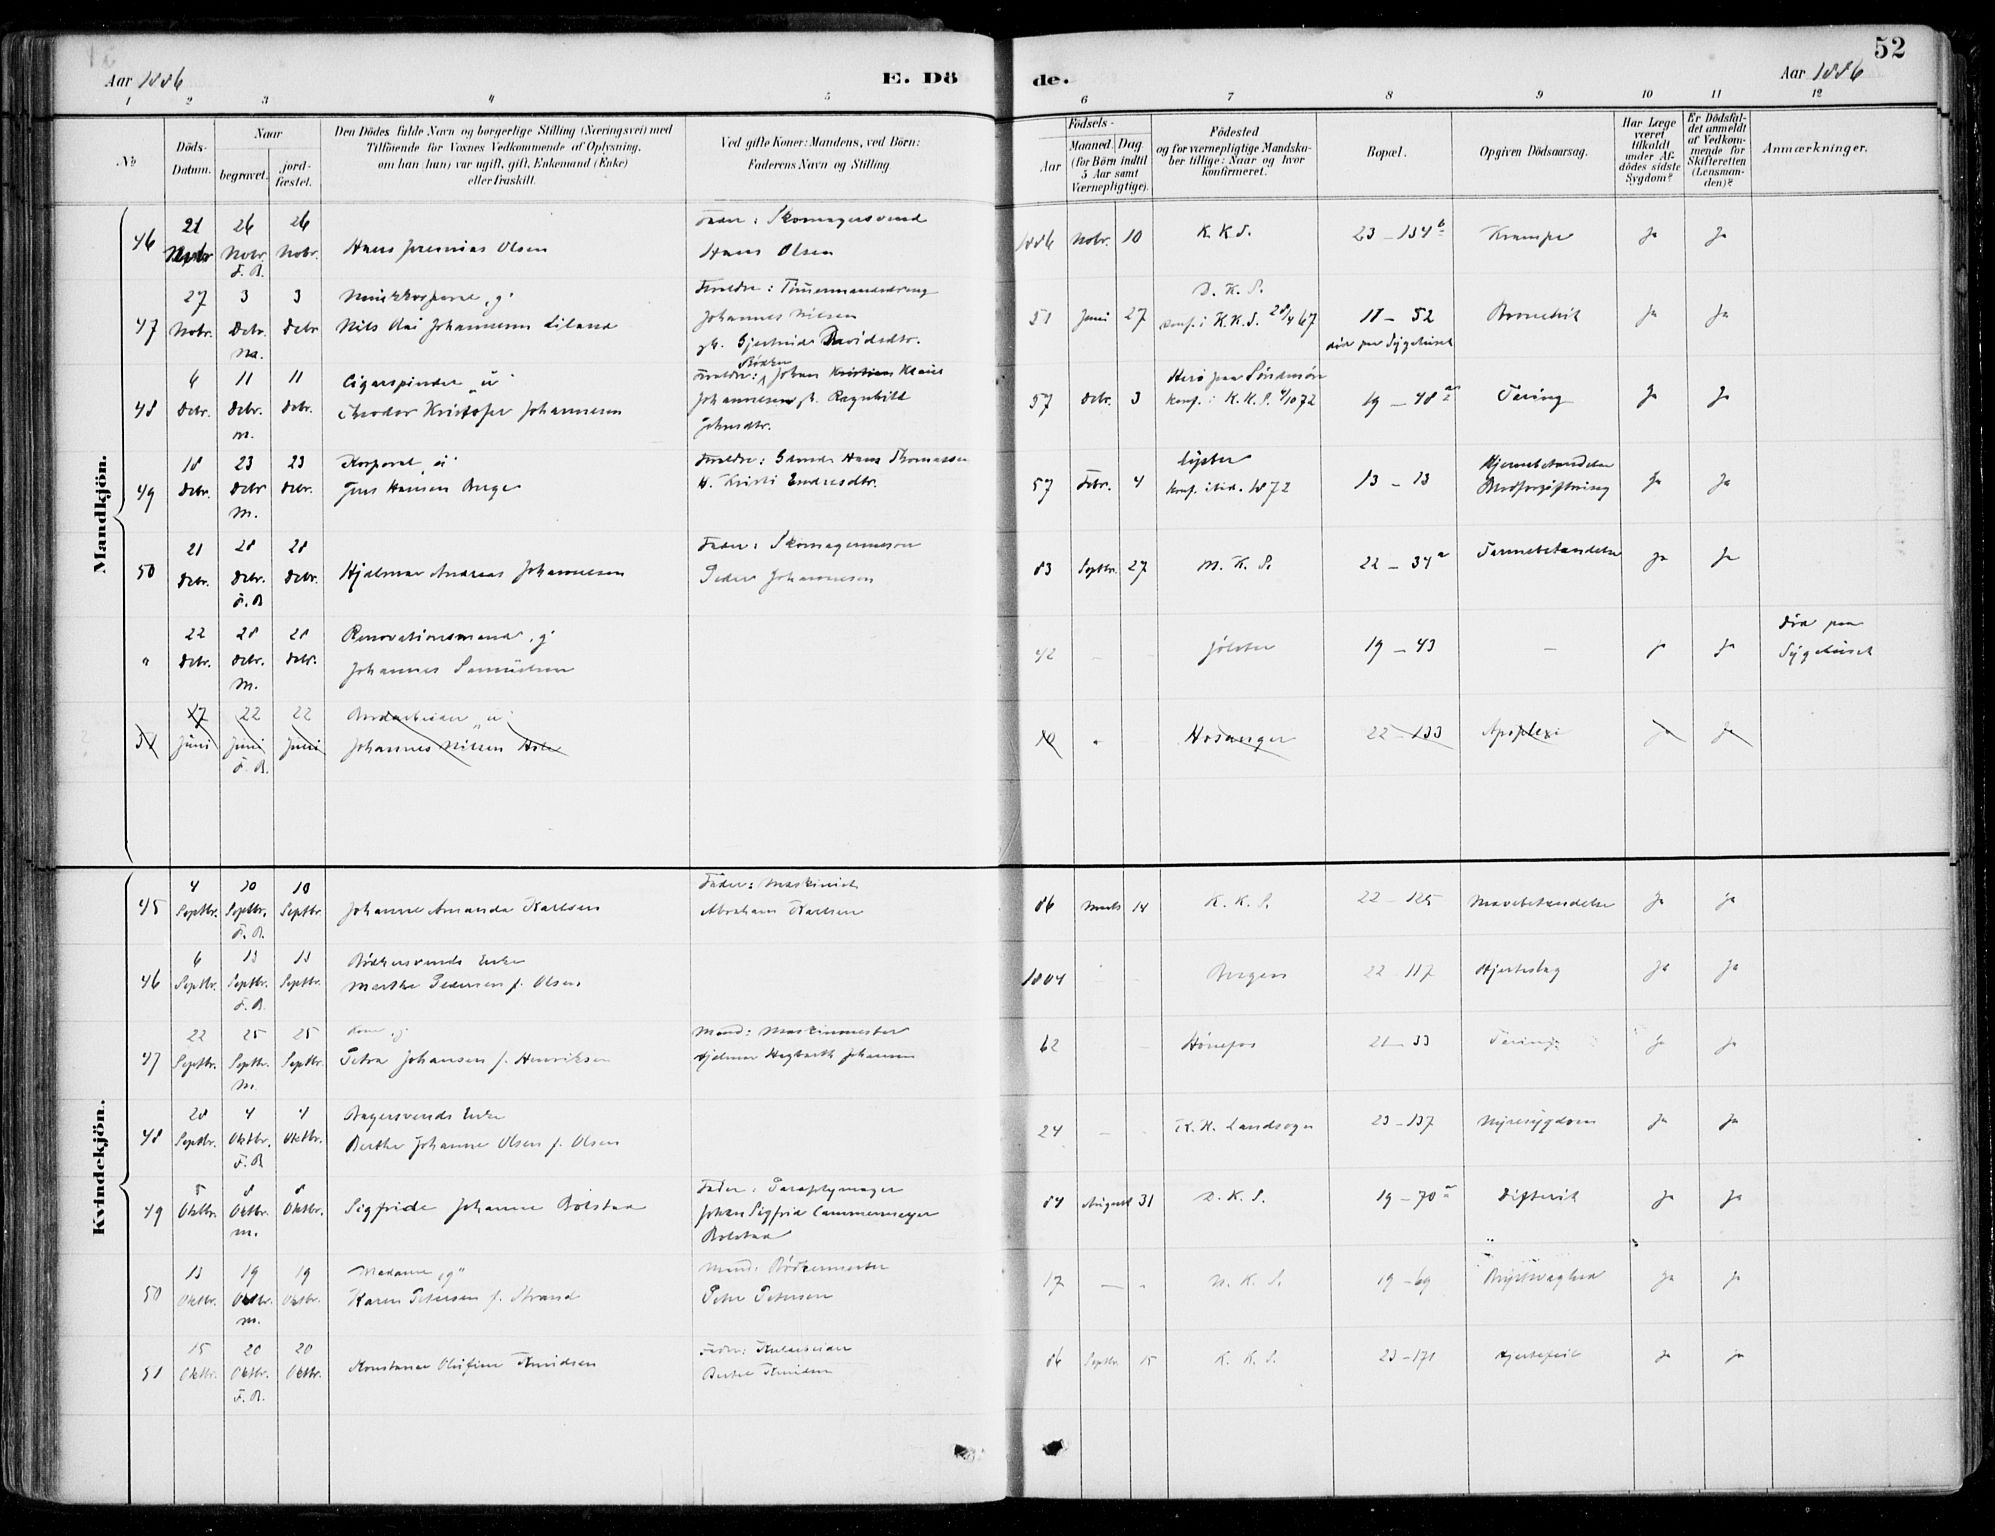 52
Aar 1886
E. Dö
de.
Aar 1886
1 2 3 4 5 6 7 8 9 10 11 12
№
Döds-Datum.
Naar
begravet.
jord-fæstet.
Den Dödes fulde Navn og borgerlige Stilling (Næringsvei) med
Tilföiende for Voxnes Vedkommende af Oplysning,
om han (hun) var ugift, gift, Enkemand (Enke)
eller fraskilt.
Ved gifte Koner: Mandens, ved Börn:
Faderens Navn og Stilling.
Födsels-
Aar
Maaned. Dag.
(for Börn indtil
5 Aar samt
Værnepligtige).
Födested
og for værnepligtige Mandska-
ber tillige: Naar og hvor
konfirmeret.
Bopæl.
Opgiven Dödsaarsag.
Har Læge
været
tilkaldt
under Af-
dödes sidste
Sygdom?
Er Dödsfal-
det anmeldt
af Vedkom-
mende for
Skifteretten
(Lensman-
den)?
Anmærkninger.
Mandkjön.
21 26 26 Fader: Skomagersvend
46 Novbr. Novbr. Hans Jeremias Olsen Hans Olsen 1886 Novbr. 10 K. K. S. 23 - 134 b Krampe Ja Ja
F. B.
27 3 3 Musikkorporal "g" Forældre: Tømmermandsdreng D. K. S.
47 Novbr. Decbr. Decbr. Nils Johannesen Liland Johannes Nilsen 51 Juni 27 konf. i K. K. S. 28/4 67 18 - 52 Ja Ja
Ma. og Gjertrude Davidsdtr. død paa Sygehuset
6 11 11 Cigarspinder "u" Forældre: Bødker Johan Kristian Klaus Herø paa Søndmør
48 Decbr. Decbr. Decbr. Theodor Kristofer Johannesen Johannesen Ragnhild 57 Decbr. 3 konf. i K. K. S. 72 19 - 48 a Tæring Ja Ja
M. Johnsdtr.
18 23 23 Korporal "u" Forældre: Hans Thomassen Lyster Hjernebetændelse
49 Decbr. Decbr. Decbr. Jens Hansen Berge Kristi Endresdtr. 57 Febr. 4 konf. ibid. 1872 13 - 13 Blodforgiftning Ja Ja
M.
21 28 28 Fader: Skomagermester
50 Decbr. Decbr. Decbr. Hjalmar Andreas Johannesen Peder Johannesen 83 Septbr. 27 M. K. S. 22 - 34 a Tarmebetændelse Ja Ja
F. B.
22 28 28 Renovationsmand "g" Død paa
" Decbr. Decbr. Decbr. Johannes Samuelsen 42 - - Jølster 19 - 43 - Ja Ja Sygehuset
M.
17 22 22 "u"
51 Juni Juni Juni Johannes Nilsen 10 " Hosanger 22 - 133 Apoplexi Ja Ja
F. B.
Kvindekjön.
4 10 10 Fader: Maskinist
45 Septbr. Septbr. Septbr. Johanne Amanda Karlsen Abraham Karlsen 86 Marts 14 K. K. S. 22 - 125 Mavebetændelse Ja Ja
F. B.
6 13 13 Bødkersvends Enke
46 Septbr. Septbr. Septbr. Marthe Pedersen f. Olsen 1804 - - Bergen 22 - 117 Hjerteslag Ja Ja
F. B.
22 25 25 Kone "g" Mand: Maskinmester
47 Septbr. Septbr. Septbr. Petra Johansen f. Henriksen Hjalmar Hagbarth Johansen 62 - - Hønefos 21 - 33 Tæring Ja Ja
M.
28 4 4 Bagersvends Enke
48 Septbr. Oktbr. Oktbr. Berthe Johanne Olsen f. Olsen 24 - - K. K. Landsogn 23 - 137 Nyresygdom Ja Ja
F. B.
5 8 8 Fader: Paraplymager
49 Oktbr. Oktbr. Oktbr. Sigfride Johanne Bolstad Johan Sigfrid Cammermeyer 84 August 31 D. K. S. 19 - 70 a Difterit Ja Ja
M. Bolstad
13 19 19 Madame "g" Mand: Bødkermester
50 Oktbr. Oktbr. Oktbr. Karen Petersen f. Strand Peter Petersen 17 - - N. K. S. 19 - 69 Brystsvaghed Ja Ja
M.
15 20 20 Fader:
51 Oktbr. Oktbr. Oktbr. Konstance Olufine Knudsen Bertel Knudsen 86 Septbr. 15 K. K. S. 23 - 171 Hjertefeil Ja Ja
F. B.